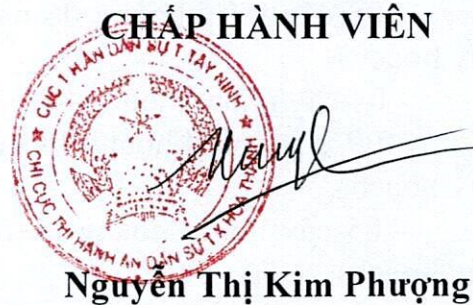 CHẤP HÀNH VIÊN
CỤC THI HÀNH ÁN DÂN SỰ T. TÂY NINH
CHI CỤC THI HÀNH ÁN DÂN SỰ TX HÒA THÀNH
Nguyễn Thị Kim Phượng